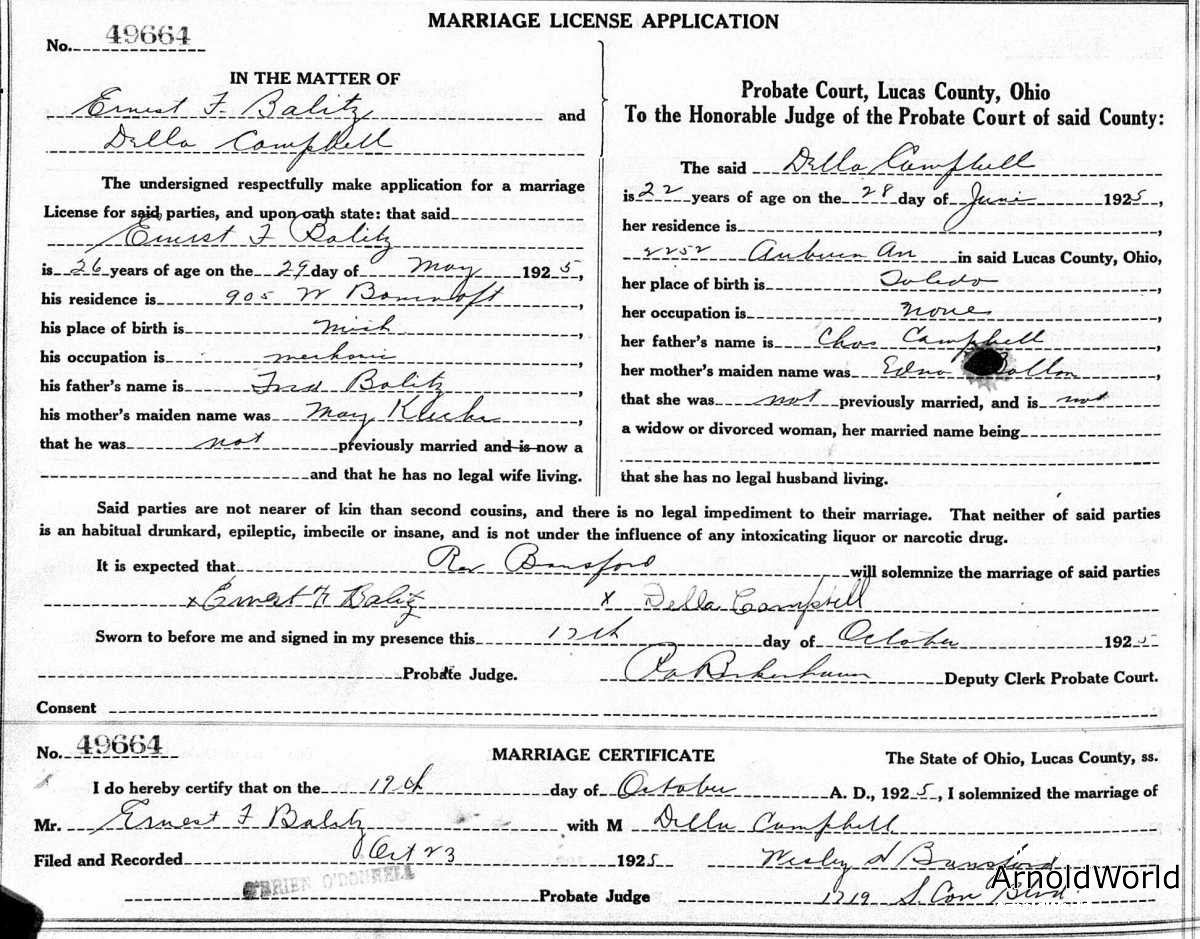 MARRIAGE LICENSE APPLICATION
No. 49664
IN THE MATTER OF
Ernest F. Balitz and
Della Campbell
The undersigned respectfully make application for a marriage
License for said parties, and upon oath state: that said
Ernest F Balitz
is 26 years of age on the 29 day of May 1925,
his residence is 905 W Bancroft,
his place of birth is Mich,
his occupation is mechanic,
his father's name is Fred Balitz,
his mother's maiden name was May,
that he was not previously married and is now a
and that he has no legal wife living.
Probate Court, Lucas County, Ohio
To the Honorable Judge of the Probate Court of said County:
The said Della Campbell
is 22 years of age on the 28 day of June 1925,
her residence is,
2252 Auburn Av in said Lucas County, Ohio,
her place of birth is Toledo,
her occupation is none,
her father's name is Chas Campbell,
her mother's maiden name was Edna,
that she was not previously married, and is not
a widow or divorced woman, her married name being
that she has no legal husband living.
Said parties are not nearer of kin than second cousins, and there is no legal impediment to their marriage. That neither of said parties
is an habitual drunkard, epileptic, imbecile or insane, and is not under the influence of any intoxicating liquor or narcotic drug.
It is expected that Rev Bransford will solemnize the marriage of said parties
x Ernest F Balitz x Della Campbell
Sworn to before me and signed in my presence this 17th day of October 1925
Probate Judge. Deputy Clerk Probate Court.
Consent
No. 49664 MARRIAGE CERTIFICATE The State of Ohio, Lucas County, ss.
I do hereby certify that on the 17th day of October A. D., 1925, I solemnized the marriage of
Mr. Ernest F Balitz with M Della Campbell
Filed and Recorded Oct 23 1925 Wesley Bransford
O'BRIEN O'DONNELL Probate Judge 1719 S. Cov Blvd
ArnoldWorld